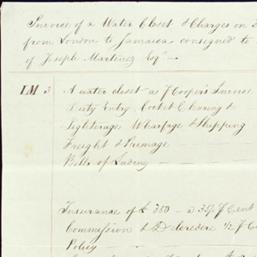 Invoice of a Water Closet & Charges on
from London to Jamaica consigned to
of Joseph Martinez Esqr
IM 3 A water closet as Coopers Invoice
Duty Entry Cocket Clearing &
Lighterage Wharfage & Shipping
Freight & Primage
Bills of Lading
Insurance of £ 380 Cent
Commission & Delcredere ½ Cent
Policy